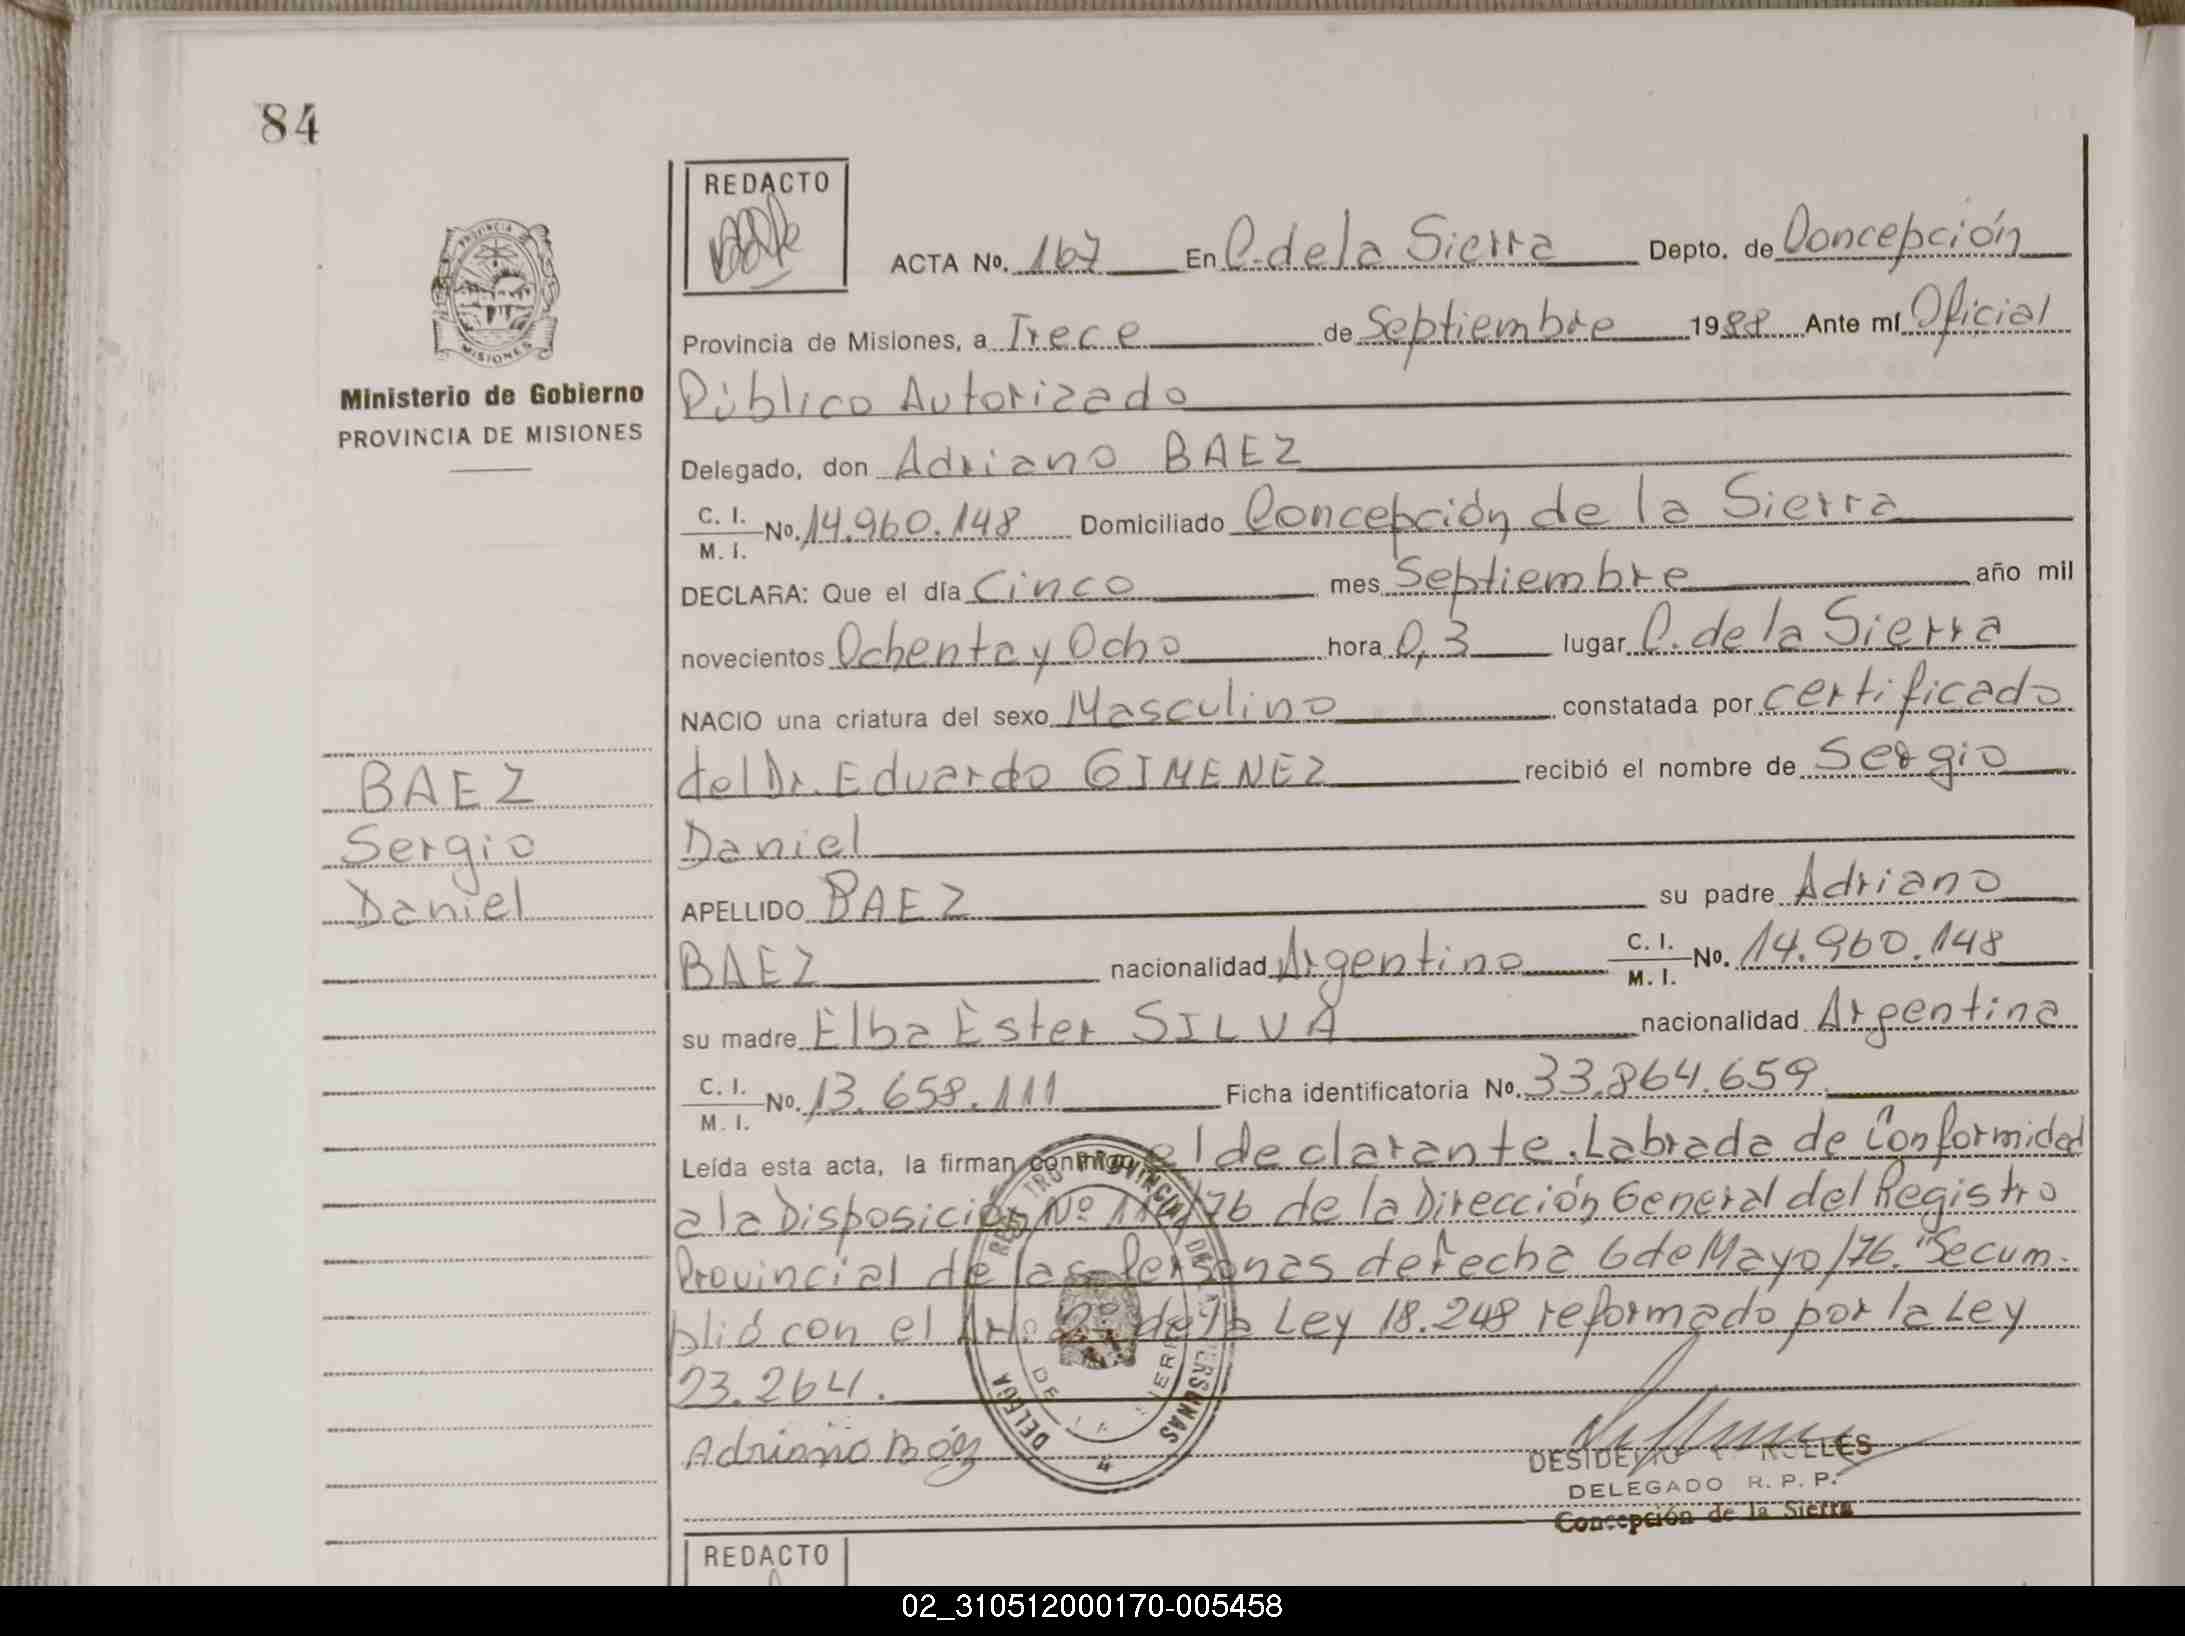 84
REDACTO
PROVINCIA
MISIONES
Ministerio de Gobierno
PROVINCIA DE MISIONES
ACTA No. 167 En C. de la Sierra Depto. de Concepción
Provincia de Misiones, a Trece de Septiembre 1988 Ante mí Oficial
Público Autorizado
Delegado, don Adriano BAEZ
C. I.
M. I. No. 14.960.148 Domiciliado Concepción de la Sierra
DECLARA: Que el día Cinco mes Septiembre año mil
novecientos Ochenta y Ocho hora 0,3 lugar C. de la Sierra
NACIO una criatura del sexo Masculino constatada por certificado
del Dr. Eduardo GIMENEZ recibió el nombre de Sergio
Daniel
APELLIDO BAEZ su padre Adriano
BAEZ nacionalidad Argentino C. I. M. I. No. 14.960.148
su madre Elba Ester SILVA nacionalidad Argentina
C. I.
M. I. No. 13.658.111 Ficha identificatoria No. 33.864.659
Leída esta acta, la firman conmigo el declarante. Labrada de Conformidad
a la Disposición Nº /76 de la Dirección General del Registro
Provincial de las Personas de Fecha 6 de Mayo/76. "Se cum-
plió con el Art. de la Ley 18.248 reformado por la Ley
23.264.
Adriano Báez
BAEZ
Sergio
Daniel
REGISTRO PROVINCIAL DE LAS PERSONAS
DELEGA
DE LA SIERR
4
DESIDERIO
DELEGADO R. P. P.
Concepción de la Sierra
REDACTO
02_310512000170-005458